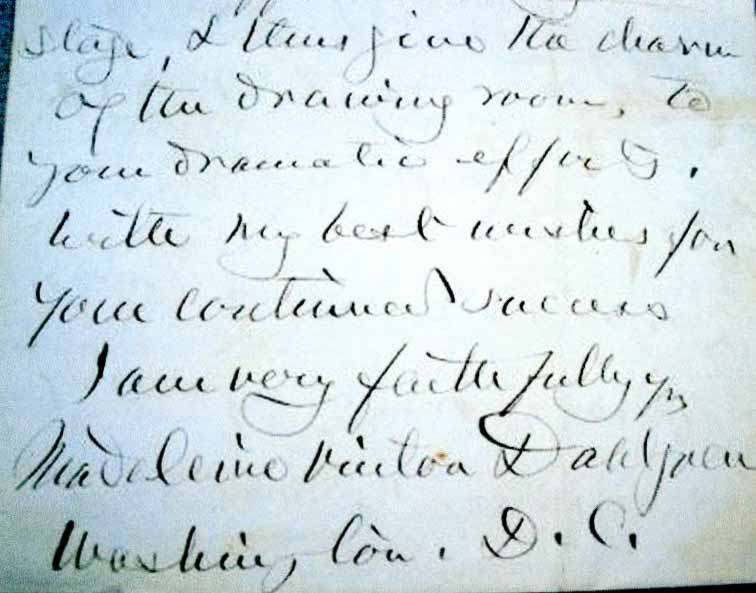 stage, & thus give the charm
of the drawing room, to
your dramatic efforts.
With my best wishes for
your continued success
I am very faithfully yrs
Madeleine Vinton Dahlgren
Washington. D.C.